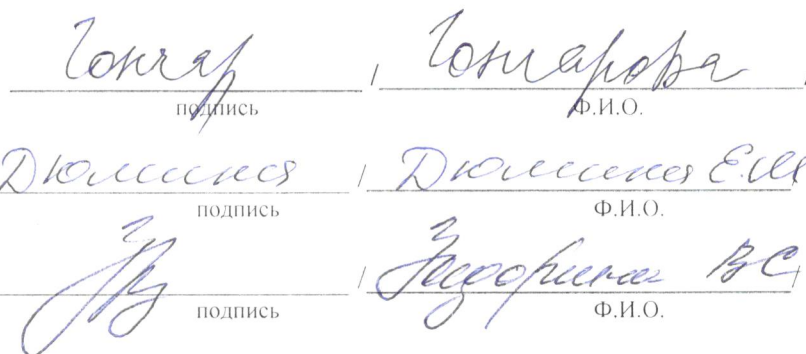 Гончар / Гончарова
подпись Ф.И.О.
Дюмина / Дюмина Е.М
подпись Ф.И.О.
/ ВС
подпись Ф.И.О.